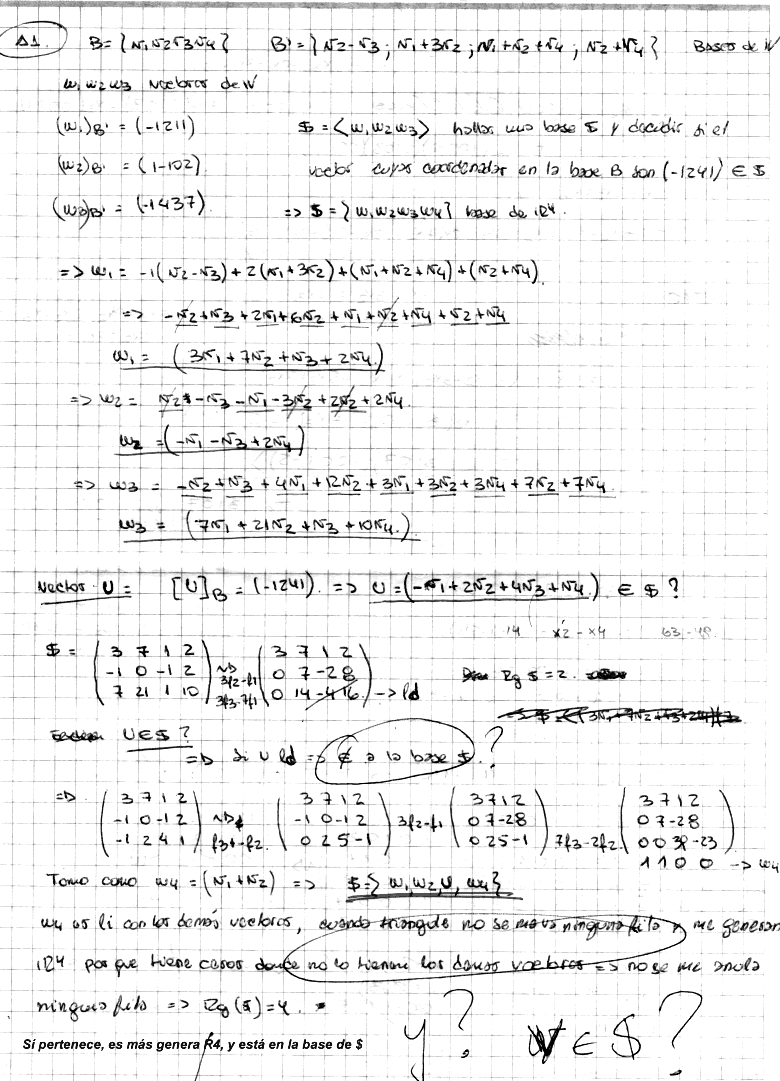 A1. B = { v1 v2 v3 v4 } B' = { v2-v3 ; v1+3v2 ; v1+v2+v4 ; v2+v4 } Bases de V
w1 w2 w3 vectores de V
(w1)B' = (-1211) $ = < w1 w2 w3 > hallar una base $ y decidir si el
(w2)B' = (1-102) vector cuyas coordenadas en la base B son (-1241) ∈ $
(w3)B' = (-1437) => $ = { w1 w2 w3 w4 } base de R4.
=> w1 = -1(v2-v3) + 2(v1+3v2) + (v1+v2+v4) + (v2+v4)
=> -v2+v3+2v1+6v2+v1+v2+v4+v2+v4
w1 = (3v1+7v2+v3+2v4)
=> w2 = v2-v3-v1-3v2+2v2+2v4
w2 = (-v1-v3+2v4)
=> w3 = -v2+v3+4v1+12v2+3v1+3v2+3v4+7v2+7v4
w3 = (7v1+21v2+v3+10v4)
Vector U = [U]B = (-1241) => U = (-v1+2v2+4v3+v4) ∈ $ ?
14 x2 - x4 63-48
$ = ( 3 7 1 2 ) ( 3 7 1 2 )
( -1 0 -1 2 ) 3f2-f1 ( 0 7 -2 8 ) Rg $ = 2.
( 7 21 1 10 ) 3f3-7f1 ( 0 14 -4 16 ) -> ld
U ∈ $ ?
=> Si U ld => ∉ a la base $ ?
=> ( 3 7 1 2 ) ( 3 7 1 2 ) ( 3 7 1 2 ) ( 3 7 1 2 )
( -1 0 -1 2 ) ( -1 0 -1 2 ) 3f2-f1 ( 0 7 -2 8 ) ( 0 7 -2 8 )
( -1 2 4 1 ) f3-f2 ( 0 2 5 -1 ) ( 0 2 5 -1 ) 7f3-2f2 ( 0 0 39 -23 )
1 1 0 0 -> w4
Tomo como w4 = (v1+v2) => $ = { w1, w2, U, w4 }
w4 es li con los demás vectores, cuando triangule no se mova ninguna fila y me generan
R4 porque tiene ceros donde no lo tienen los demas vectores => no se me anula
ninguna fila => Rg($) = 4.
Sí pertenece, es más genera R4, y está en la base de $
y? V ∈ $ ?